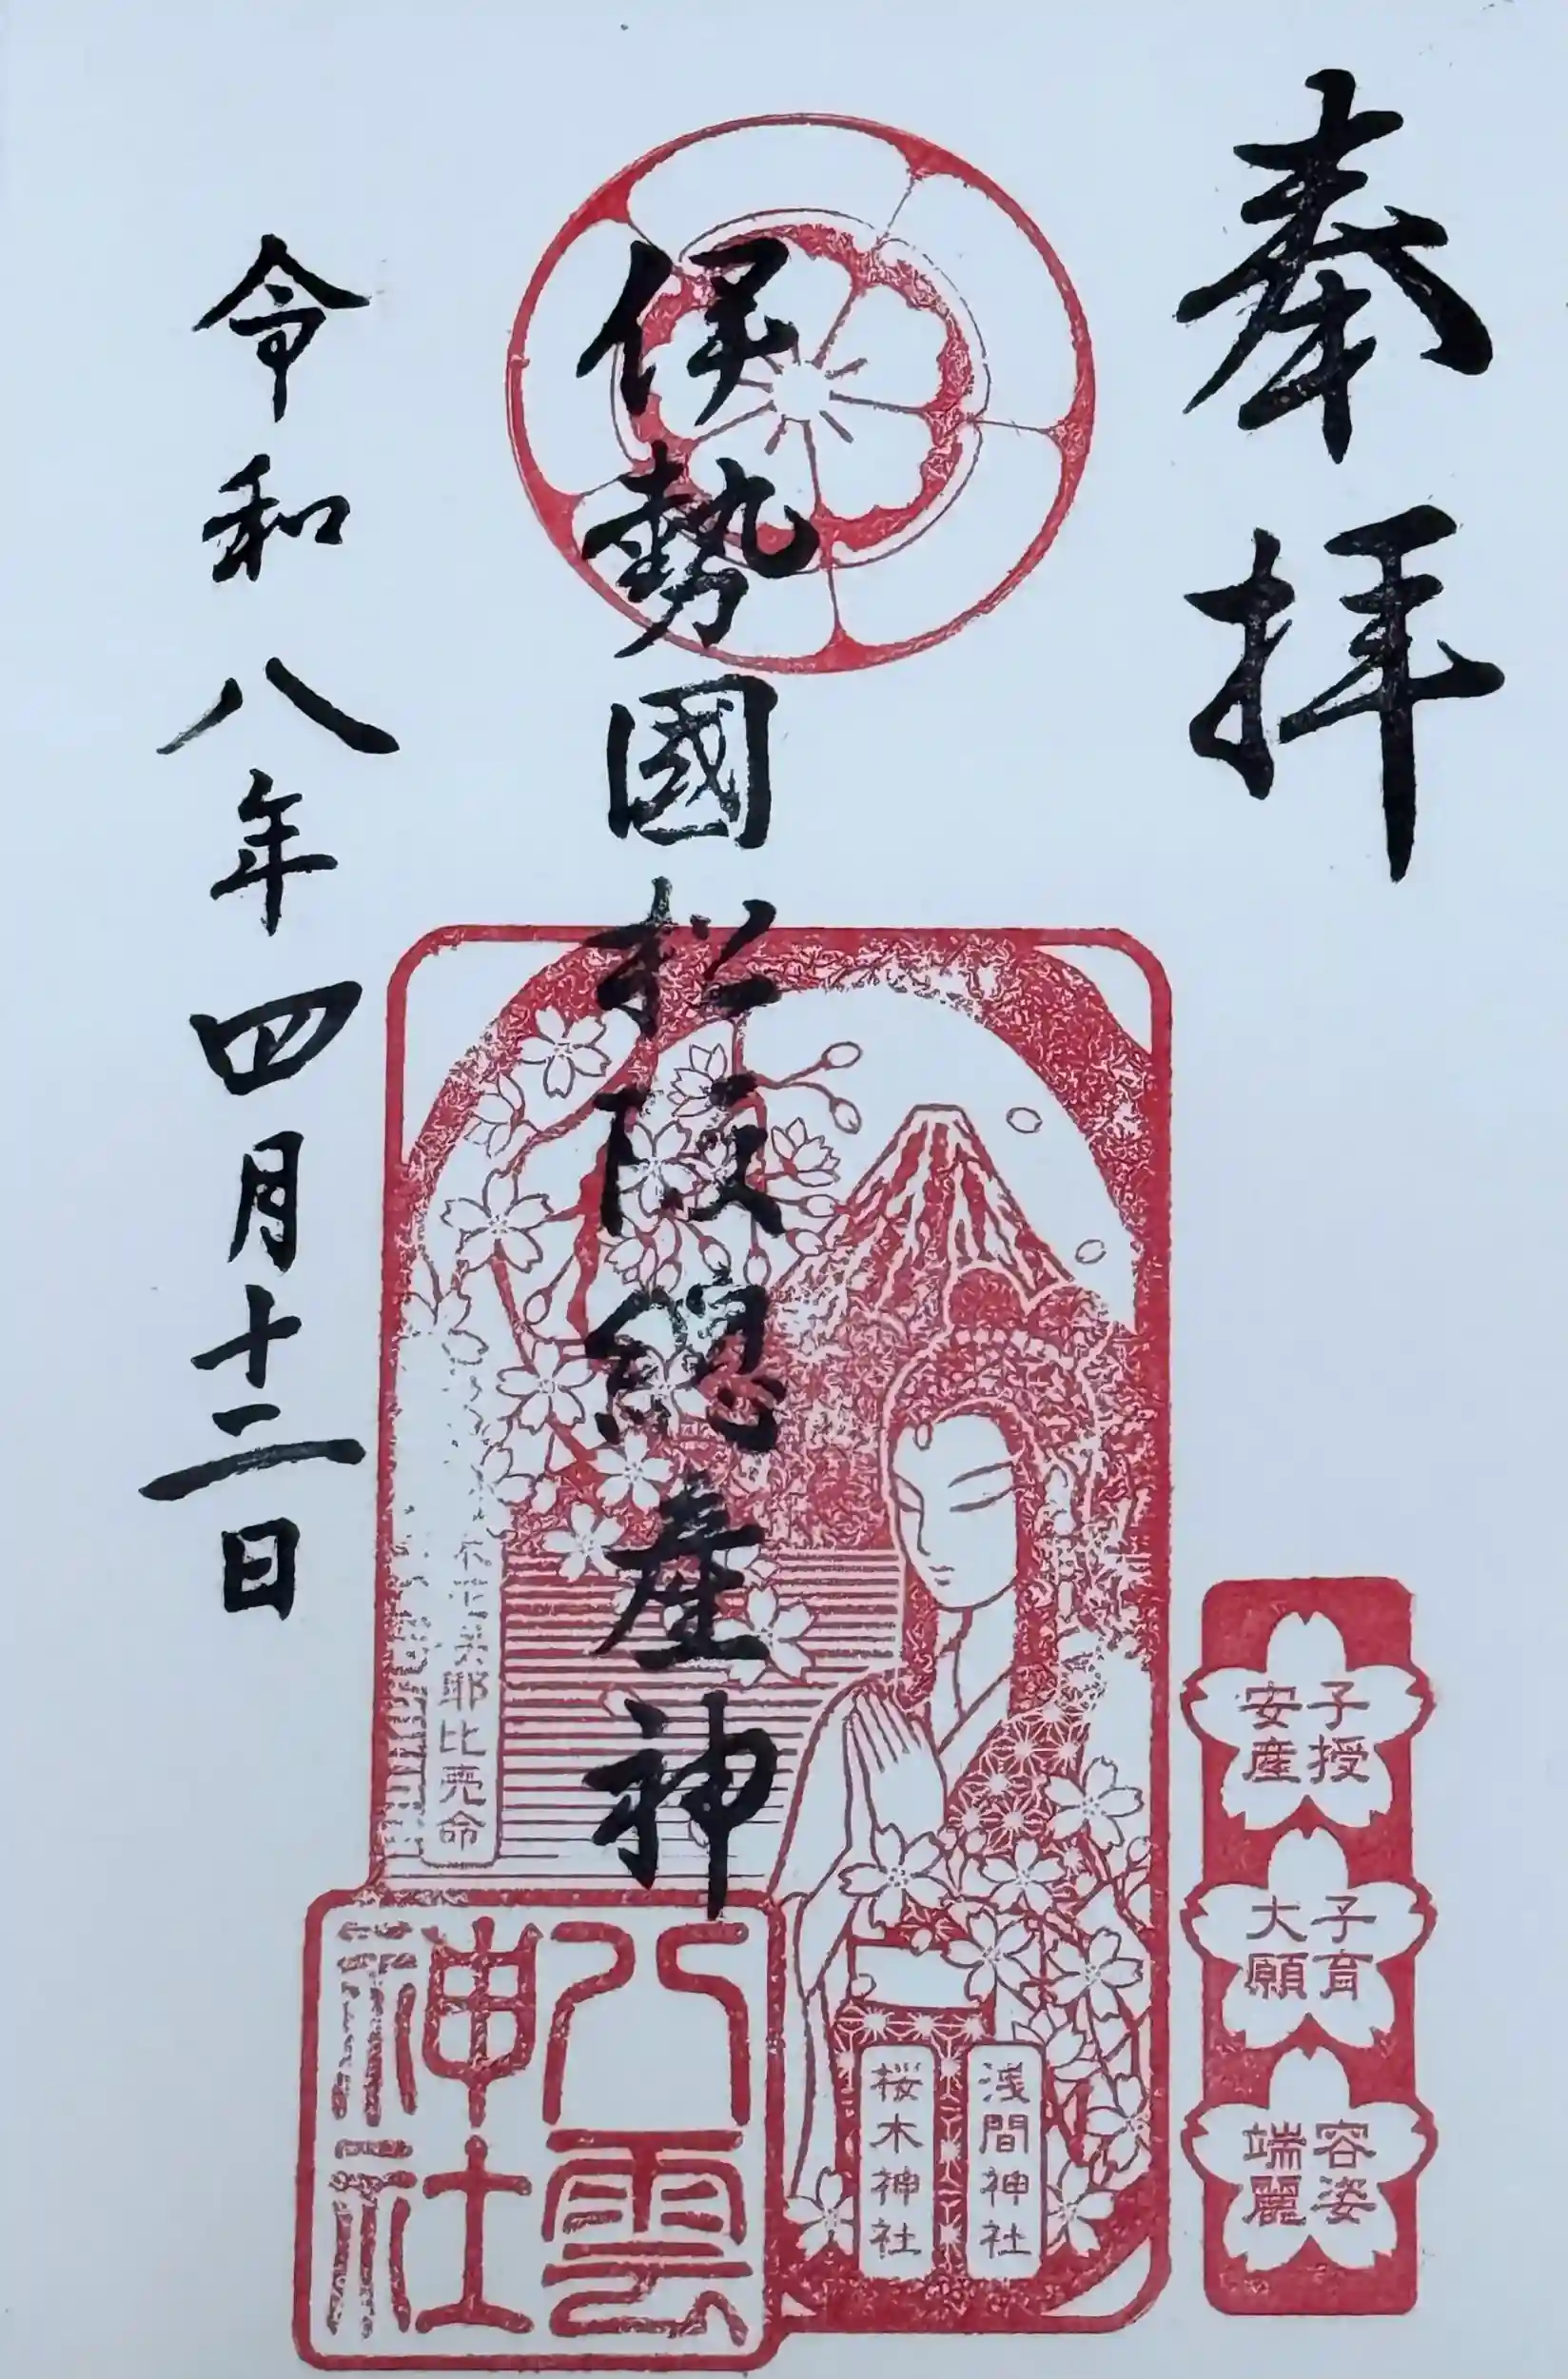 奉拝
伊勢國松阪總産神
令和八年四月十二日
子授
安産
子育
大願
容姿
端麗
浅間神社
桜木神社
耶比売命
八雲
神社